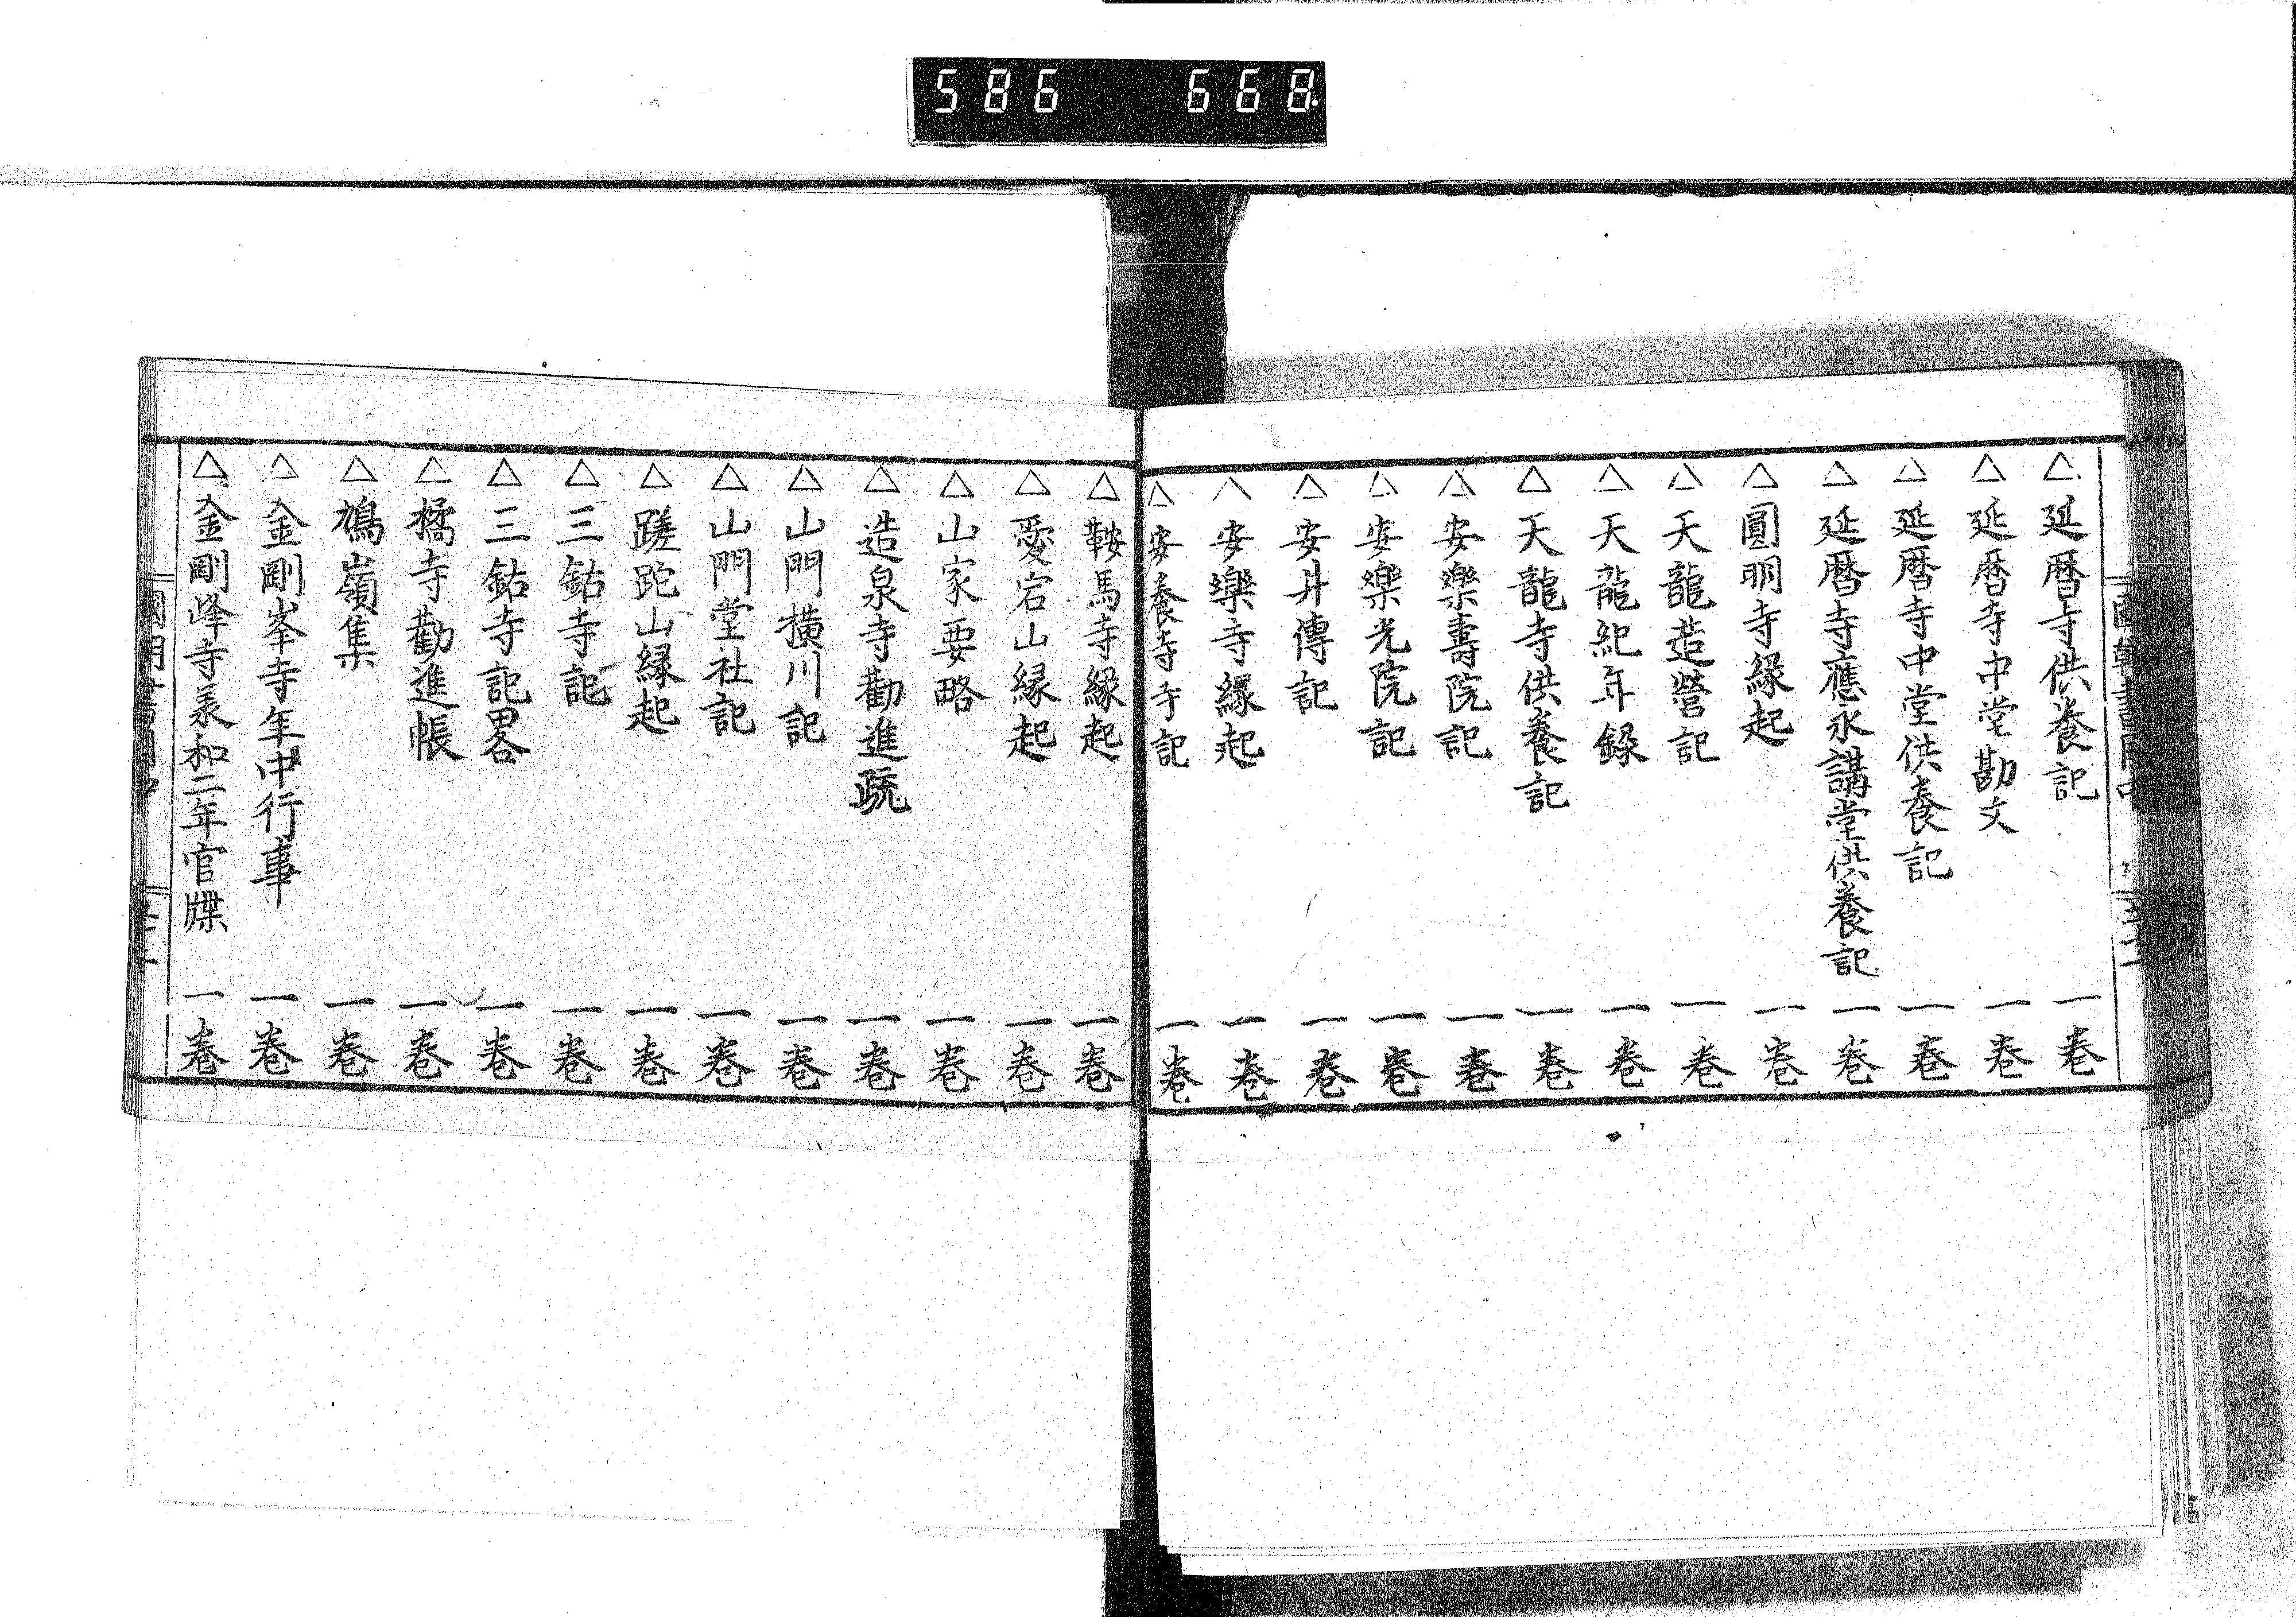 586 668
△延暦寺供養記 一巻
△延暦寺中堂勘文 一巻
△延暦寺中堂供養記 一巻
△延暦寺應永講堂供養記 一巻
△圓明寺緣起 一巻
△天龍造營記 一巻
△天龍紀年録 一巻
△天龍寺供養記 一巻
△安樂壽院記 一巻
△安樂光院記 一巻
△安井傳記 一巻
△安樂寺緣起 一巻
△安養寺記 一巻
△鞍馬寺縁起 一巻
△愛宕山縁起 一巻
△山家要略 一巻
△造泉寺勸進疏 一巻
△山門橫川記 一巻
△山門堂社記 一巻
△蹉跎山縁起 一巻
△三鈷寺記 一巻
△三鈷寺記畧 一巻
△橘寺勸進帳 一巻
△鳩嶺集 一巻
△金剛峯寺年中行事 一巻
△金剛峰寺承和二年官牒 一巻